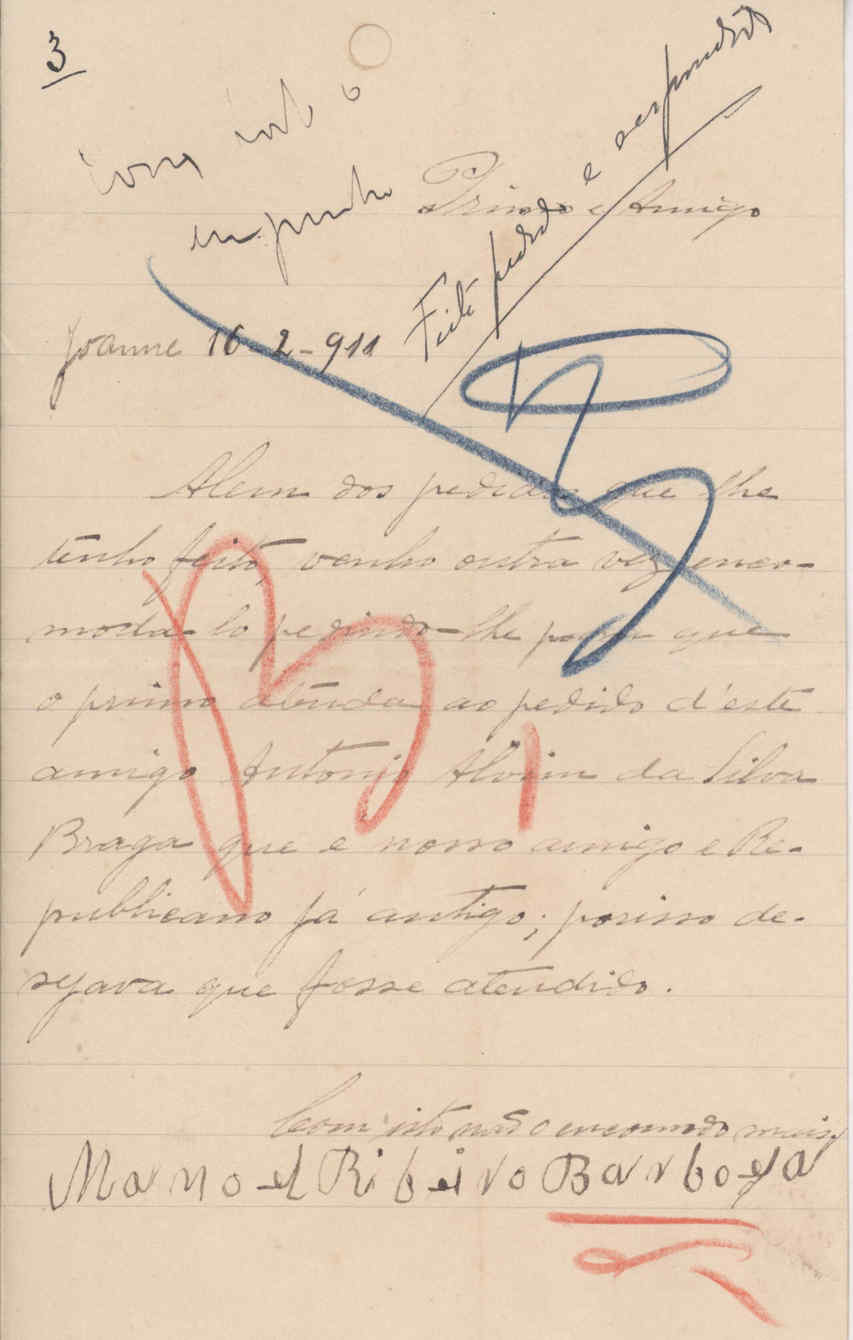 3
Feito pedido e respondido
Primo e Amigo
Joanne 16-2-911
Alem dos pedidos que lhe
tenho feito, venho outra vez enco-
moda-lo pedindo-lhe para que
o primo atenda ao pedido d'este
amigo Antonio Alvim da Silva
Braga que e nosso amigo e Re-
publicano já antigo; porisso de-
sejava que fosse atendido.
Com isto não o encomodo mais,
Manoel Ribeiro Barboza
B